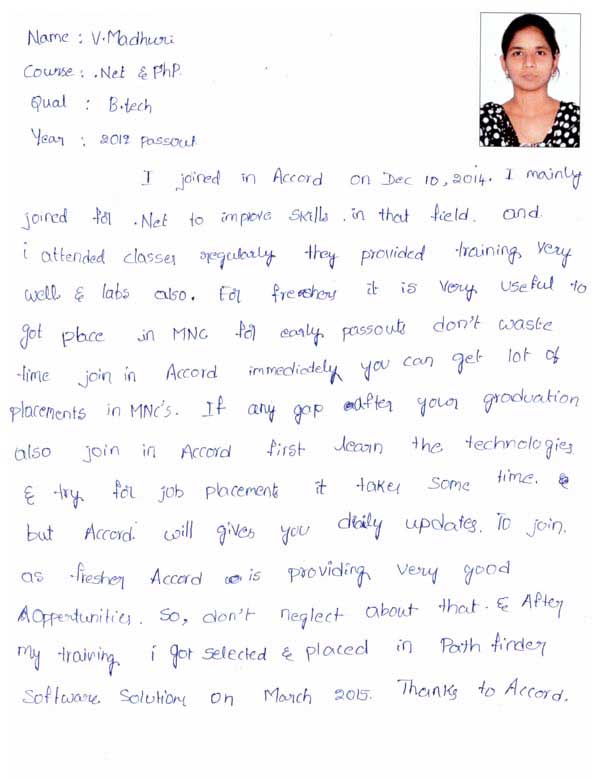 Name : V.Madhuri
Course : .Net & PhP
Qual : B.tech
Year : 2012 passout
I joined in Accord on Dec 10, 2014. I mainly
joined for .Net to improve skills .in that field. and
i attended classes regularly they provided training very
well & labs also. For freshers it is very useful to
got place in MNC for early passouts don't waste
time join in Accord immediately you can get lot of
placements in MNC's. If any gap after your graduation
also join in Accord first learn the technologies
& try for job placement it takes some time. &
but Accord. will gives you daily updates. To join.
as fresher Accord is providing very good
Oppertunities. So, don't neglect about that. & After
my training i got selected & placed in Path finder
Software Solutions on March 2015. Thanks to Accord.